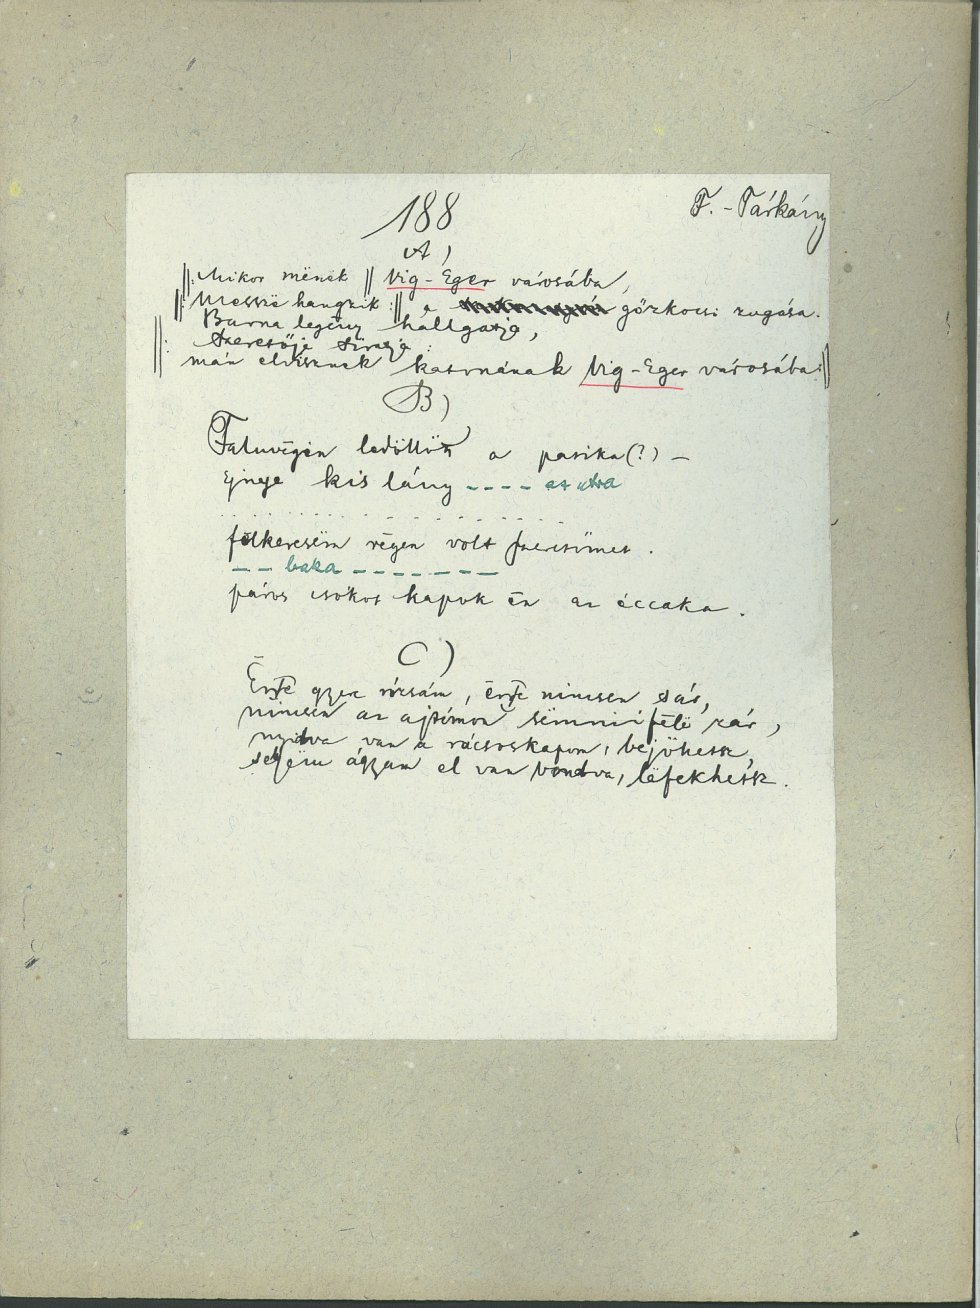 188
F. - Tárkány
A)
‖: Mikor mënek ‖ Vig-Eger városába,
‖: Messzë hangzik :‖ a gőzkocsi zugása.
Barna legény hallgatja,
‖: Szeretője siratja :
mán elvisznek katonának Vig-Eger városába :‖
B)
Faluvégén ledöllött a pasika(?) –
ejnye kis lány - - - - az utra
. . . . . . . . . . . . . . . . . . .
fëlkeresëm régen volt szeretőmet.
- - baka - - - - - - -
páros csókot kapok én az éccaka.
C)
Érte gyere rózsám, érte nincsen sár,
nincsën az ajtómon sëmmiféle zár,
nyitva van a rácsoskapum, bejöhetsz,
ágyam el van vondva, lëfekhetsz.